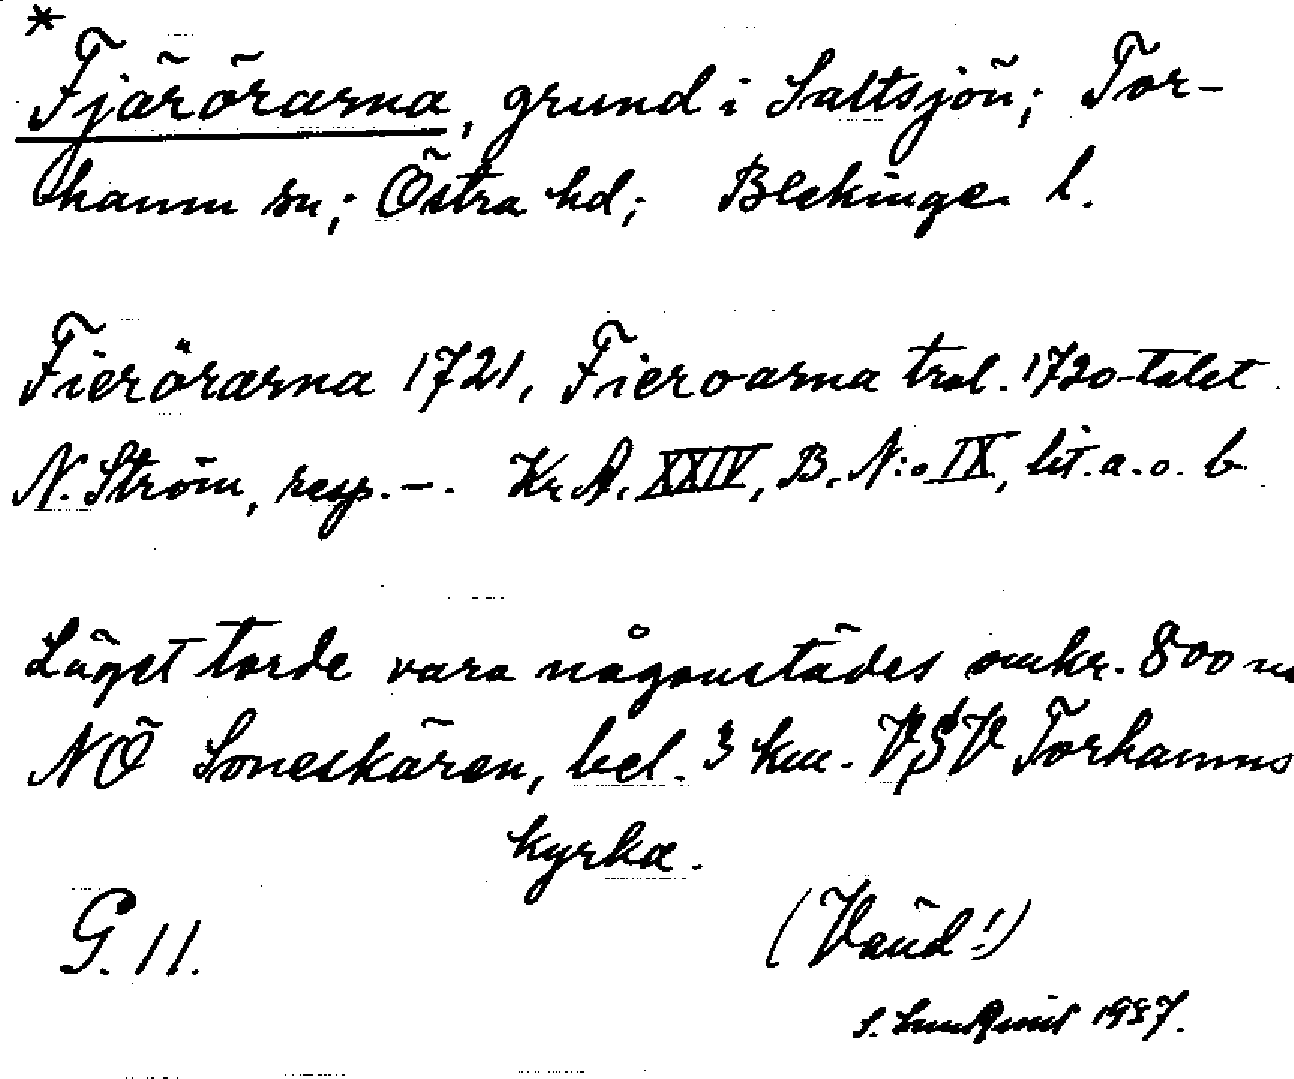 *
Fjärörarna, grund i Saltsjön; Tor-
hamn sn; Östra hd; Blekinge l.
Fierörarna 1721, Fieroarna trol. 1720-talet
N. Ström, resp. –. Kr A. XXIV, B. N:o IX, lit. a. o. b
Läget torde vara någonstädes omkr. 800 m
NÖ Soneskären, bel. 3 km. VSV Torhamns
kyrka.
G. 11. (Vänd!)
S. Lundquist 1937.